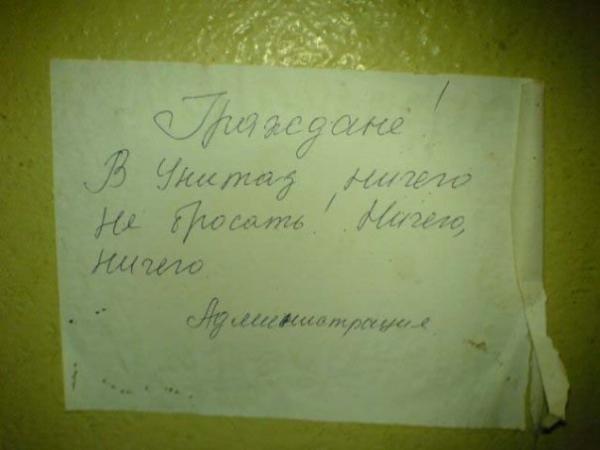 Граждане!
В Унитаз ничего
не бросать! Ничего,
ничего
Администрация